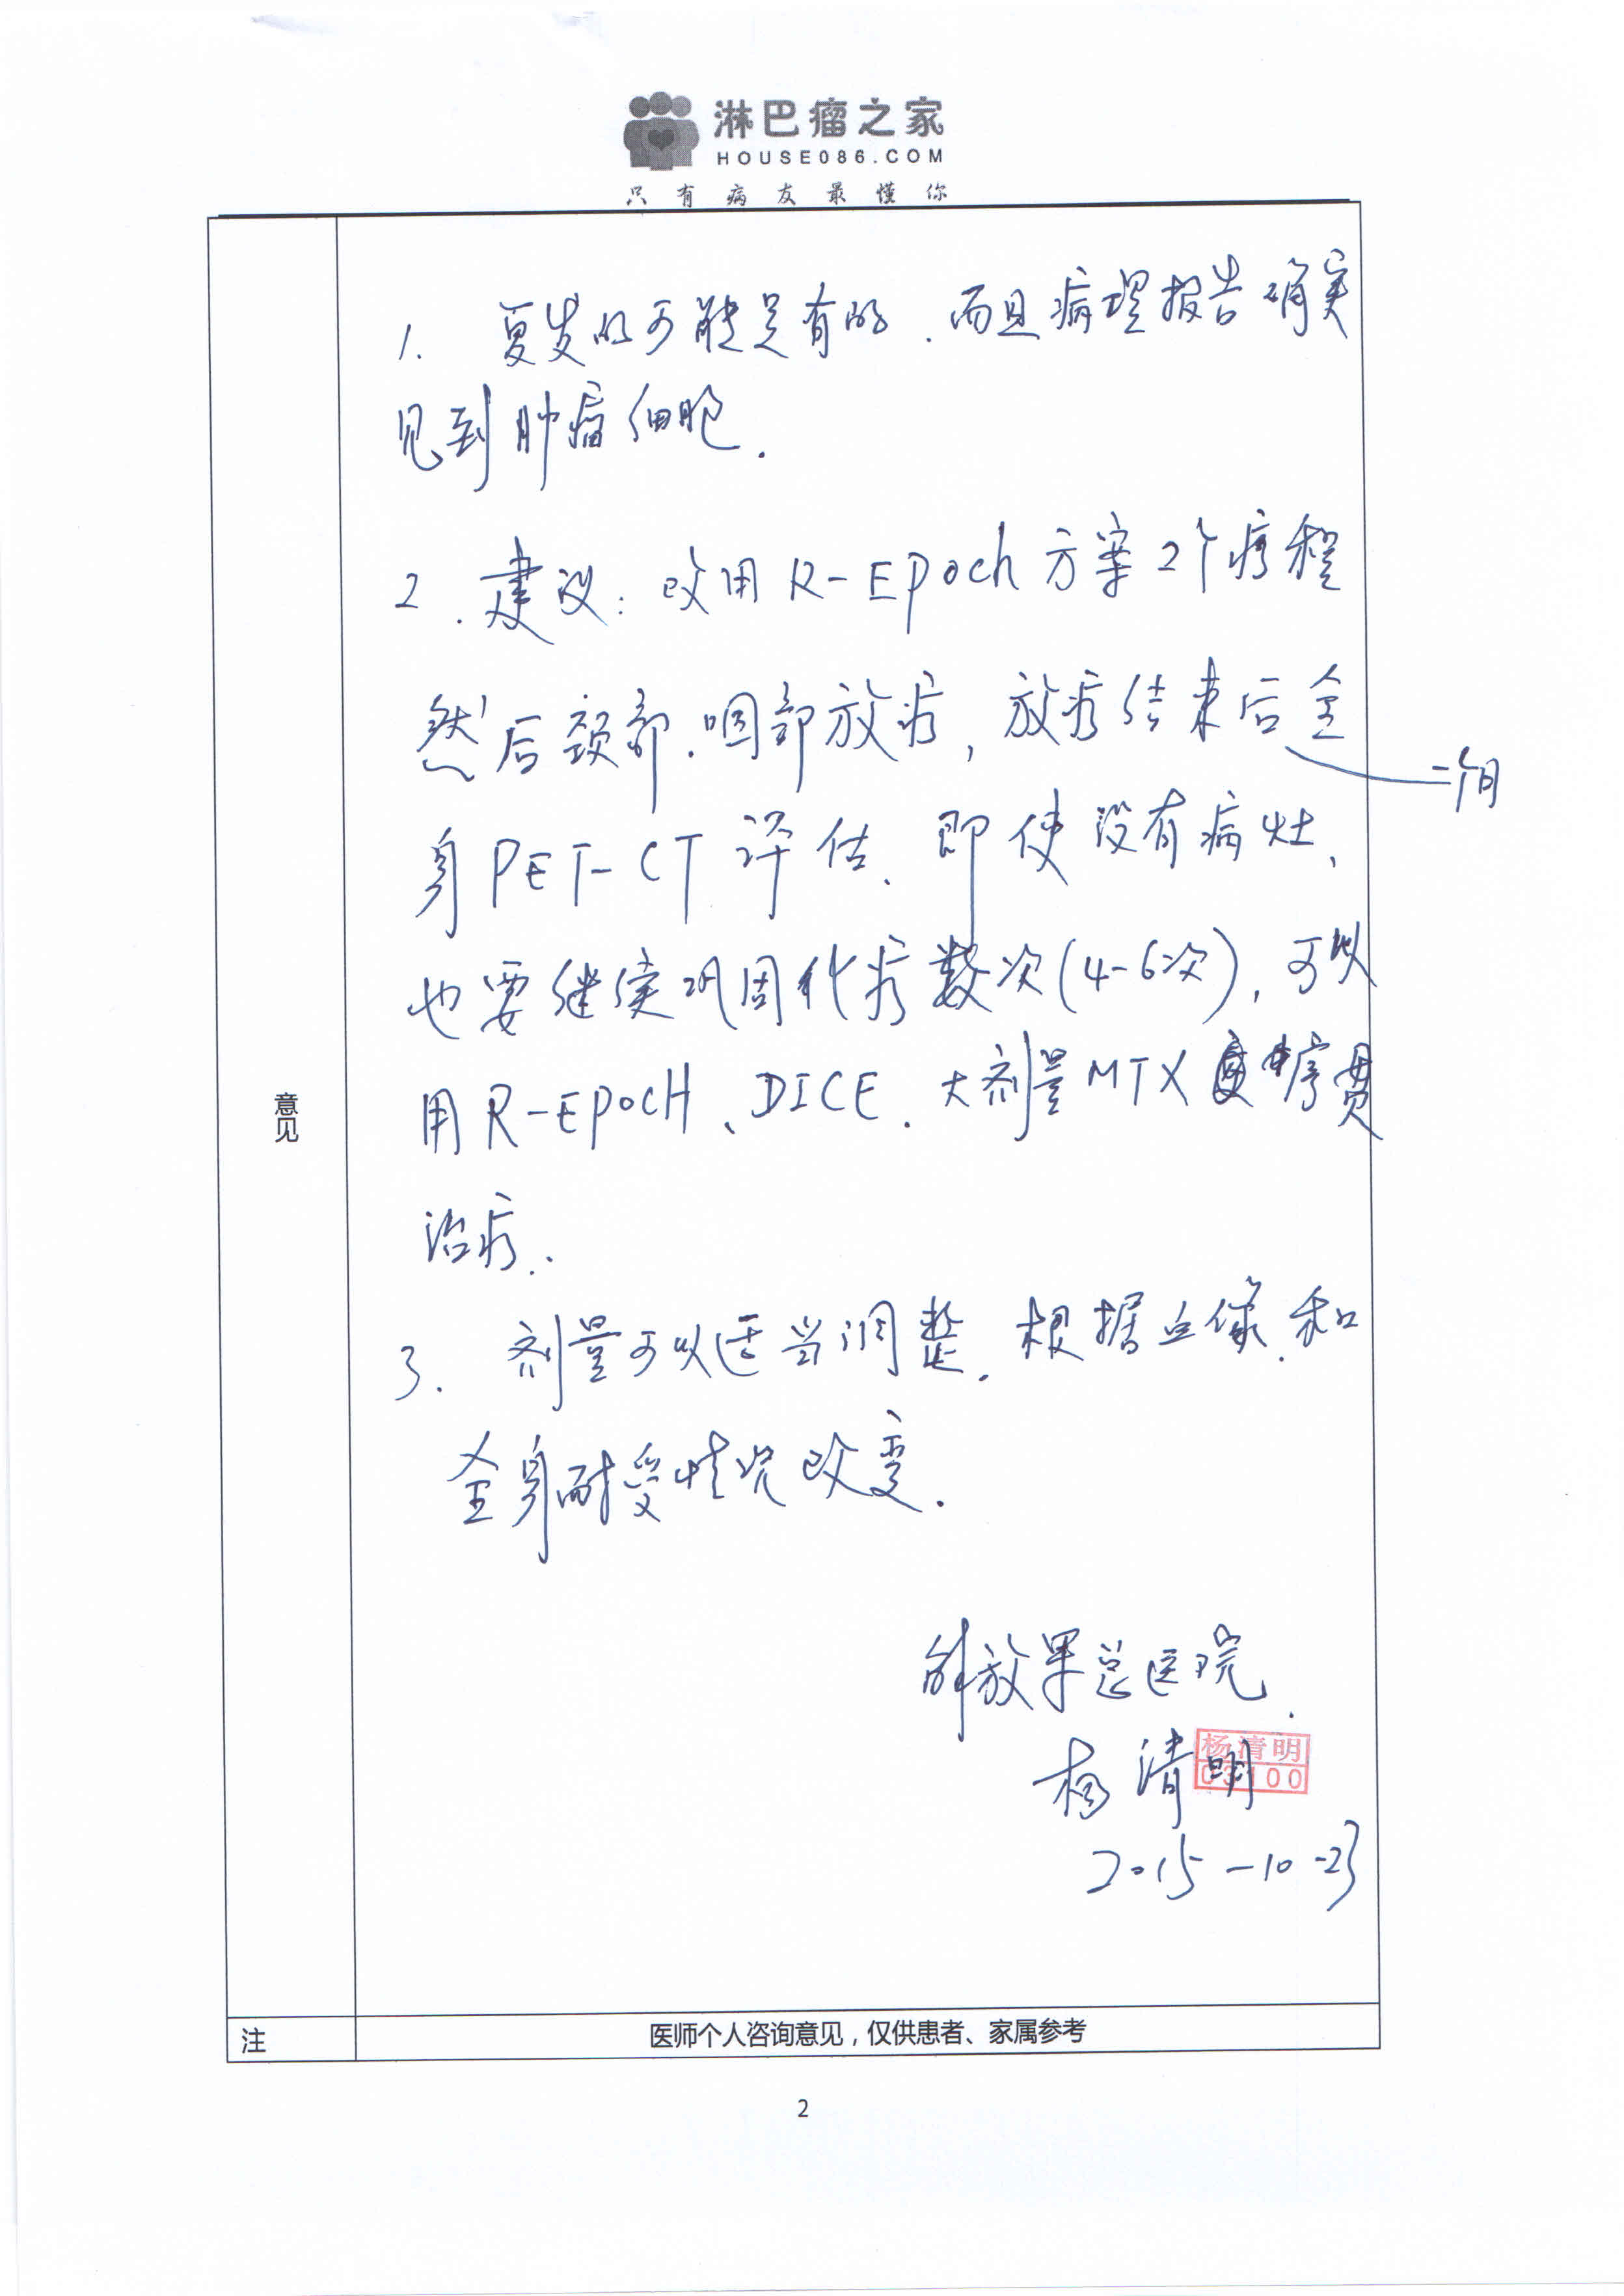 淋巴瘤之家
HOUSE086.COM
只有病友最懂你
1. 复发的可能是有的.而且病理报告确实
见到肿瘤细胞.
2. 建议:改用R-Epoch方案2个疗程
然后颈部.咽部放疗,放疗结束后全
二个月
身PET-CT评估.即使没有病灶,
也要继续巩固化疗数次(4-6次),可以
用R-EPOCH、DICE.大剂量MTX序贯
治疗..
3. 剂量可以适当调整.根据血像.和
全身耐受情况改变.
意见
解放军总医院.
杨清明
杨清明
03100
2015-10-23
注
医师个人咨询意见,仅供患者、家属参考
2